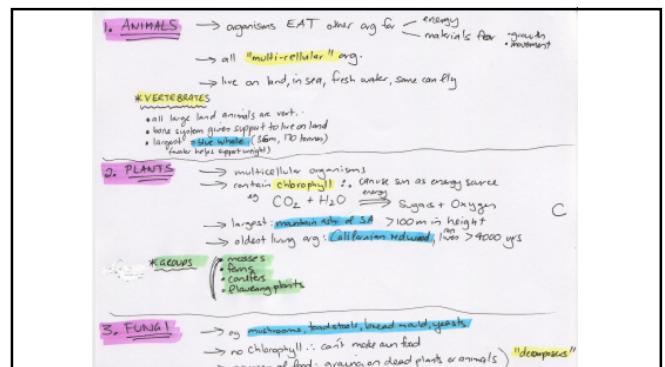 1. ANIMALS → organisms EAT other org for energy
materials for • growth
• movement
→ all "multi-cellular" org.
→ live on land, in sea, fresh water, some can fly
* VERTEBRATES
• all large land animals are vert.
• bone system gives support to live on land
• largest = blue whale (36m, 170 tonnes)
(water helps support weight)
2. PLANTS → multicellular organisms
→ contain chlorophyll ∴ can use sun as energy source
eg CO₂ + H₂O energy ⟹ Sugars + Oxygen
C
→ largest: mountain ash of SA >100m in height
→ oldest living org: Californian redwood, lives >4000 yrs
* GROUPS • mosses
• ferns
• conifers
• flowering plants
3. FUNGI → eg mushrooms, toadstools, bread mould, yeasts
→ no chlorophyll ∴ can't make own food
→ source of food: growing on dead plants or animals) "decomposers"